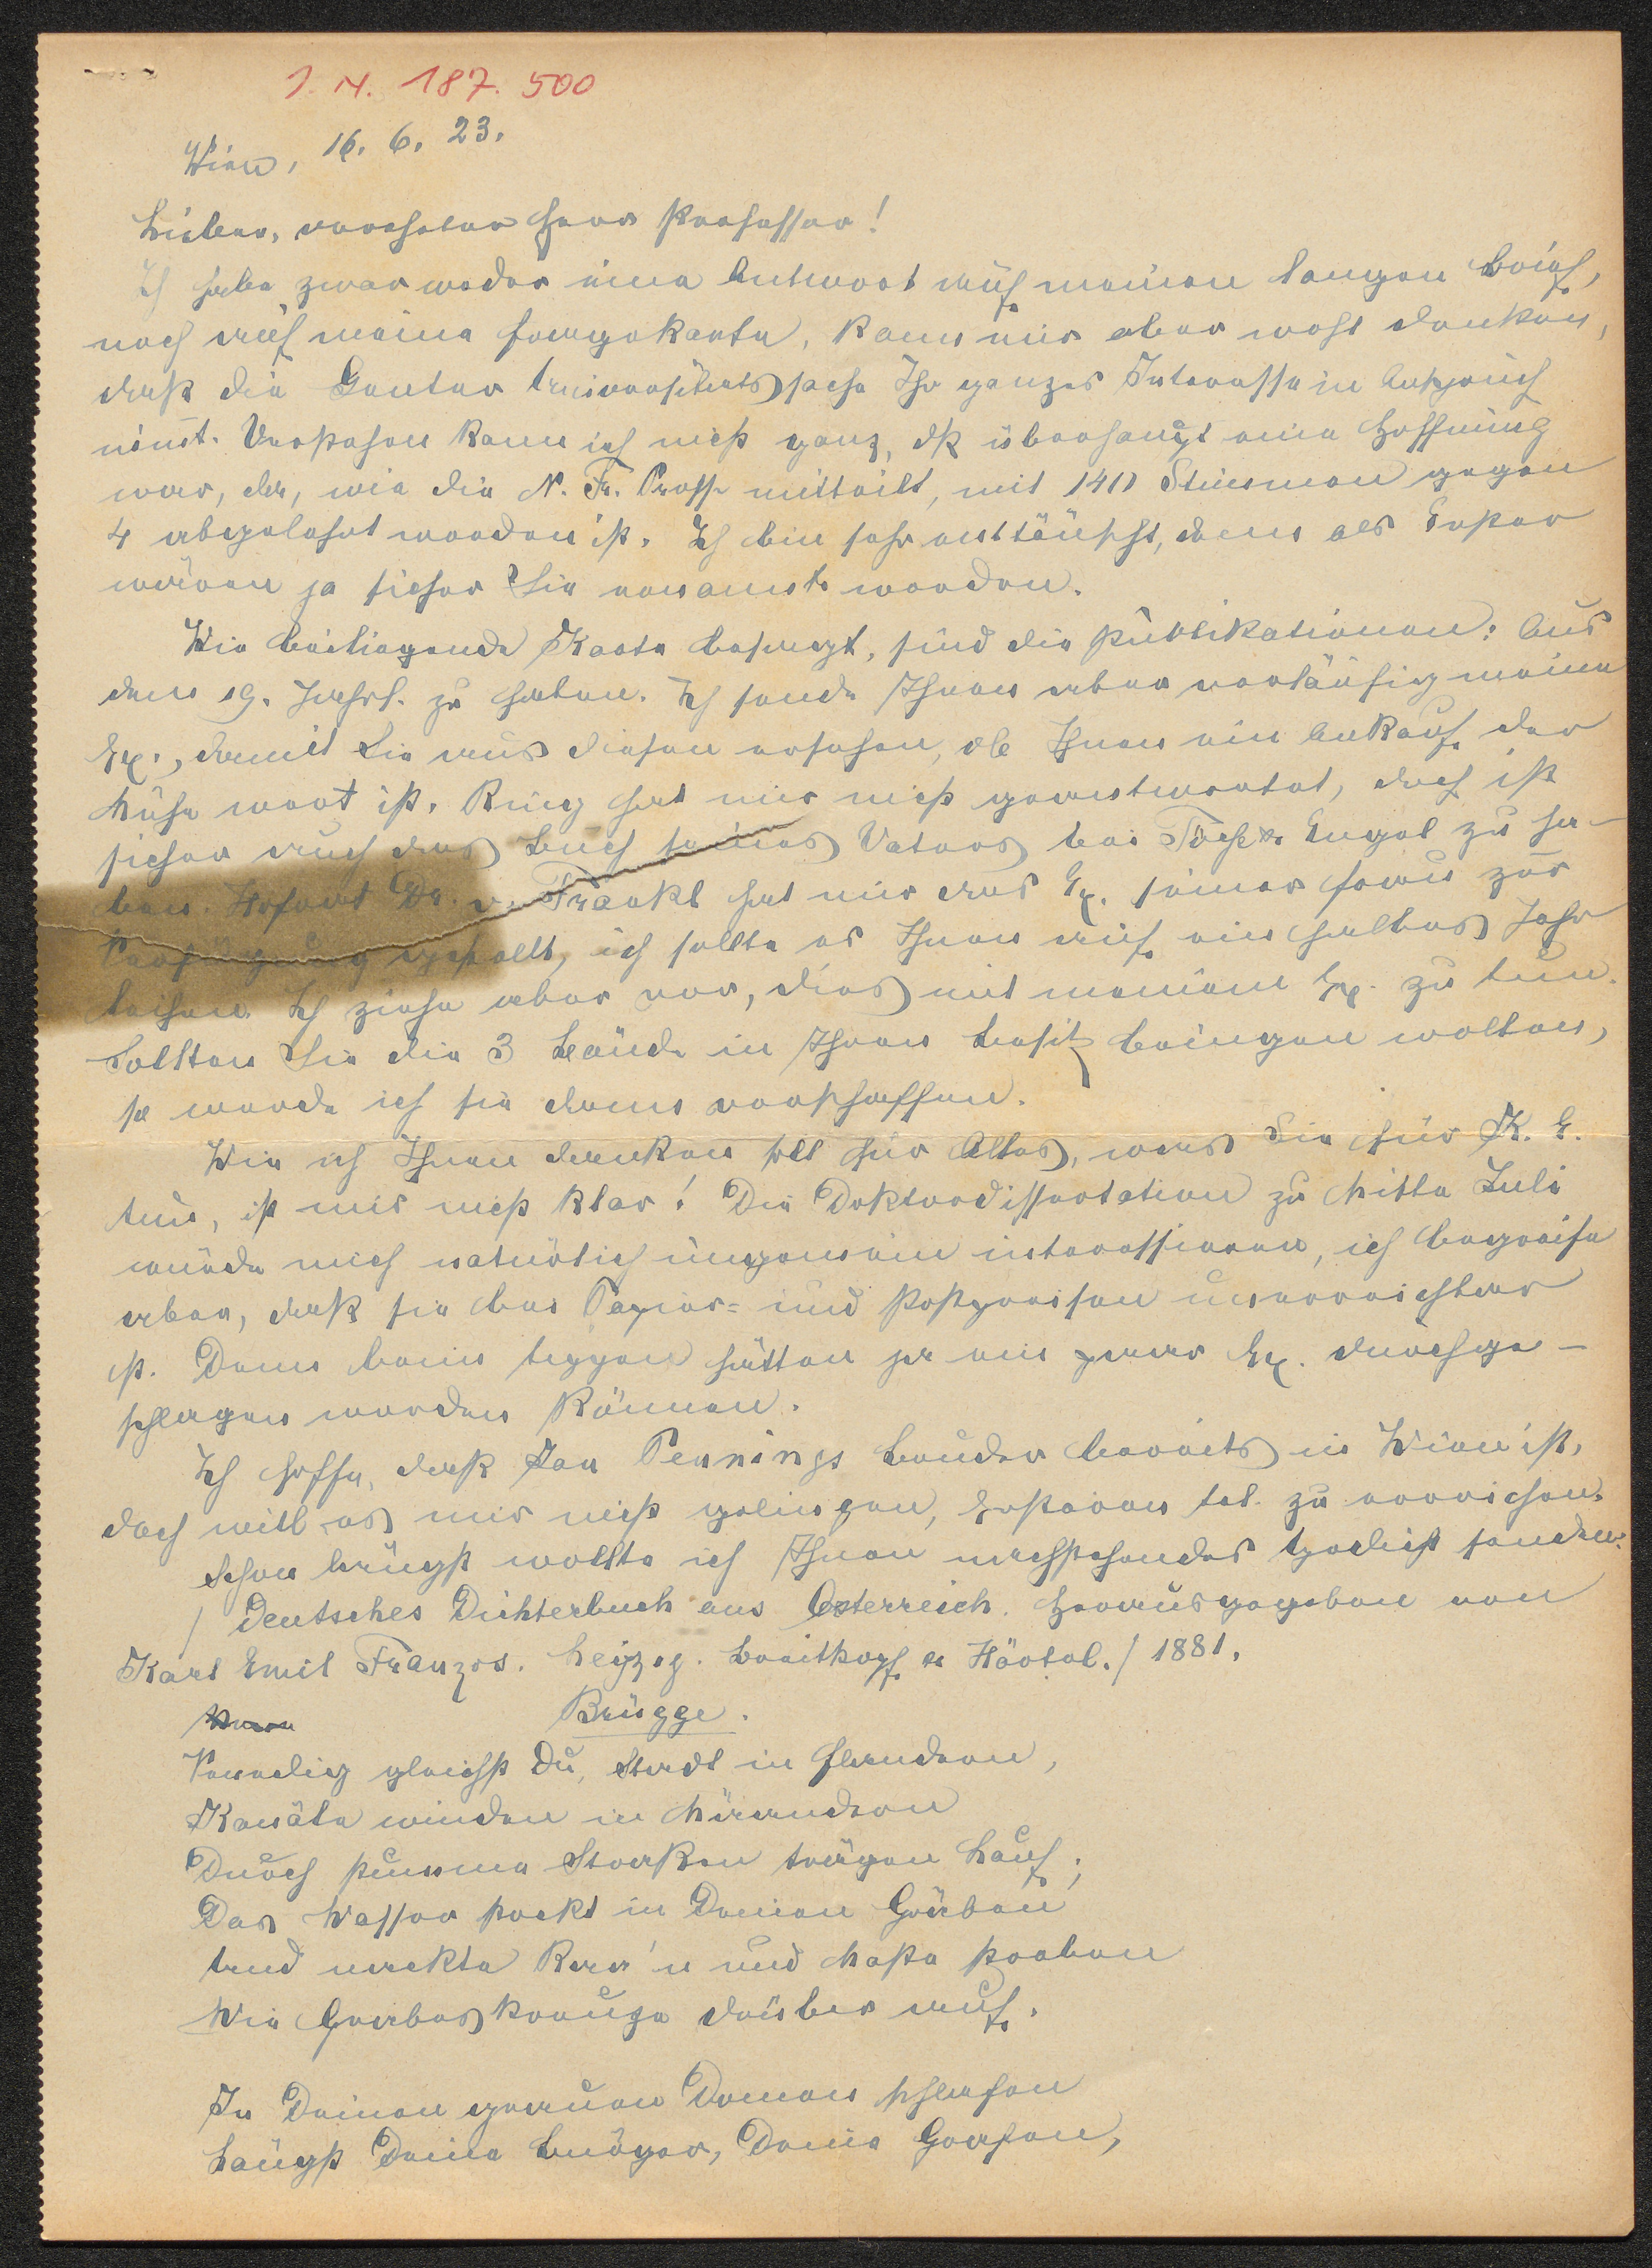 I. N. 187.500
Wien, 16. 6. 23.
Lieber, verehrter Herr Professor!
Ich habe zwar weder eine Antwort auf meinen langen Brief,
noch auf meine Honigkarte, kann mir aber wohl denken,
daß die Genter Universitätssache Ihr ganzes Interesse in Anspruch
nimt. Verstehen kann ich nicht ganz, ob überhaupt eine Hoffnung
war, da, wie die N. Fr. Presse mitteilt, mit 140 Stimmen gegen
4 abgelehnt worden ist. Ich bin sehr enttäuscht, denn als Erster
wären ja sicher Sie ernannt worden.
Wie beiliegende Karte besagt, sind die Publikationen: Aus
dem 19. Jahrh. zu haben. Ich sende Ihnen aber vorläufig meine
Ex., damit Sie aus diesen ersehen, ob Ihnen ein Ankauf der
Mühe wert ist. Ring hat mir nicht geantwortet, doch ist
sicher auch das Buch seines Vaters bei Tosch & Engel zu ha-
ben. Hofrat Dr. v. Frankl hat mir das Ex. seiner Frau zur
Verfügung gestellt, ich sollte es Ihnen auf ein halbes Jahr
leihen. Ich ziehe aber vor, dies mit meinem Ex. zu tun.
Sollten Sie die 3 Bände in Ihren Besitz bringen wollen,
so werde ich sie dann verschaffen.
Wie ich Ihnen danken soll für Alles, was Sie für K. E.
tun, ist mir nicht klar! Die Doktordissertation zu Mitte Juli
würde mich natürlich ungemein interessieren, ich begreife
aber, daß sie bei Papier- und Postpreisen unerreichbar
ist. Denn beim tippen hätten ja ein paar Ex. durchge-
schlagen werden können.
Ich hoffe, daß Jan Pennings Bruder bereits in Wien ist,
doch will es mir nicht gelingen, Ersteren tel. zu erreichen.
Schon längst wollte ich Ihnen nachstehendes Gedicht senden:
/ Deutsches Dichterbuch aus Österreich. Herausgegeben von
Karl Emil Franzos. Leipzig. Breitkopf & Härtel. / 1881.
Brügge.
Venedig gleichst Du, Stadt in Flandern,
Kanäle winden in Mäandern
Durch stumme Strecken trägen Lauf;
Das Wasser stockt in Deinen Gräben
Und nackte Raa'n und Maste streben
Wie Grabeskreuze drüber auf.
In Deinen grauen Domen schlafen
Längst Deine Bürger, Deine Grafen,